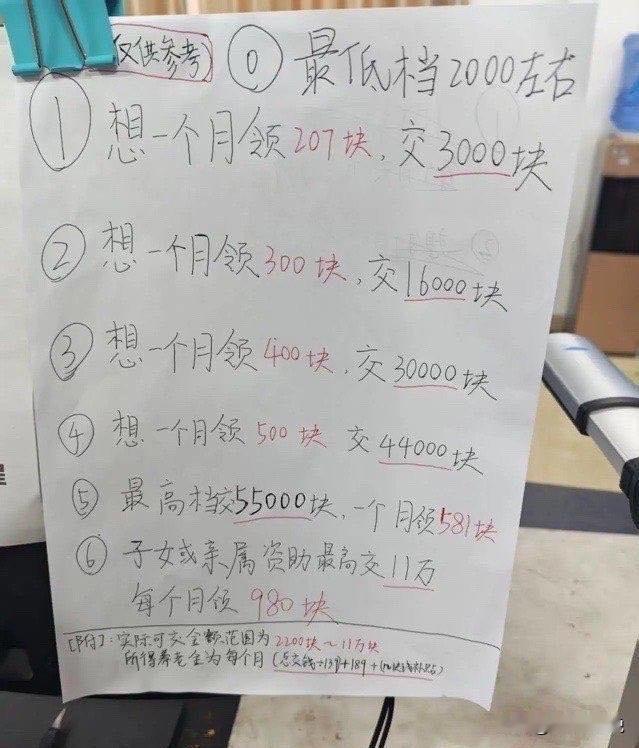 仅供参考 ⓪ 最低档2000左右
① 想一个月领207块，交3000块
② 想一个月领300块，交16000块
③ 想一个月领400块，交30000块
④ 想一个月领500块 交44000块
⑤ 最高档较55000块，一个月领581块
⑥ 子女或亲属资助最高交11万
每个月领 980块
[附]：实际可交金额范围为2200块~11万块
所得养老金为每个月(总交钱÷139)+189+